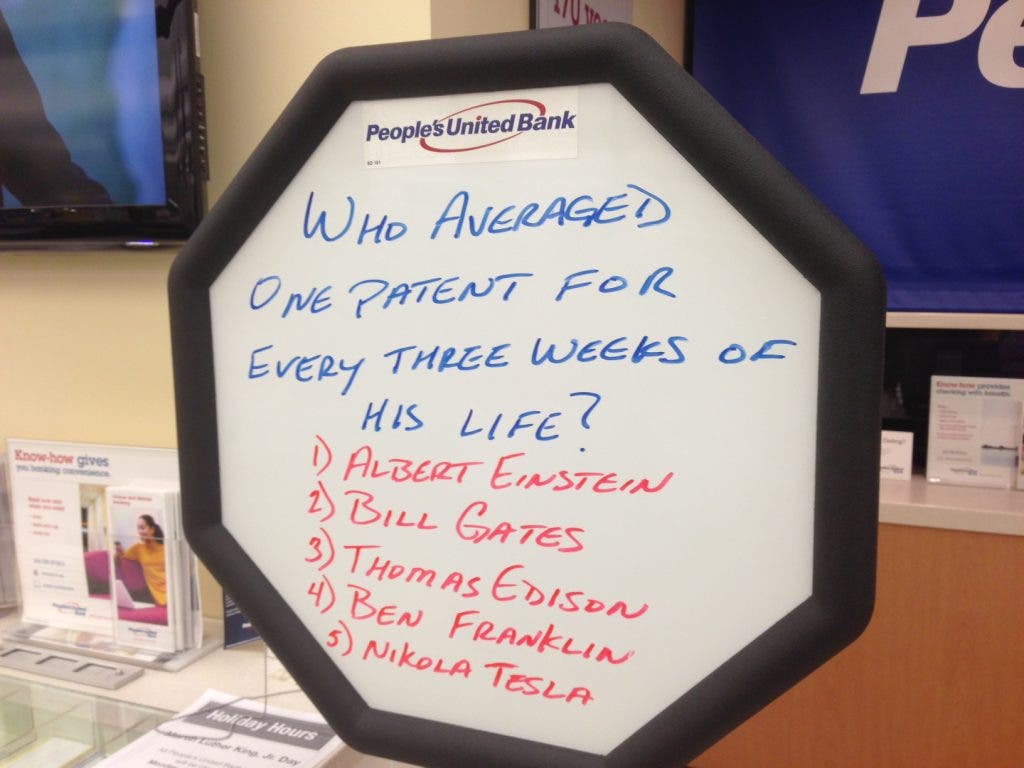 170 yea
Pe
People's United Bank
WHO AVERAGED
ONE PATENT FOR
EVERY THREE WEEKS OF
HIS LIFE?
1) ALBERT EINSTEIN
2) BILL GATES
3) THOMAS EDISON
4) BEN FRANKLIN
5) NIKOLA TESLA
Know-how gives
you banking convenience.
Know-how provides
checking with benefits.
Holiday Hours
Martin Luther King, Jr. Day